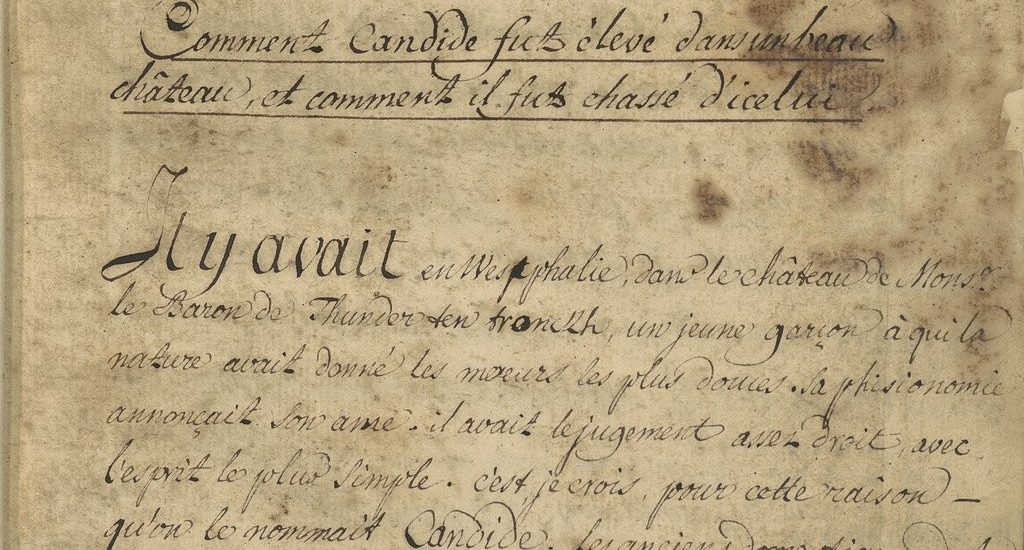 Comment Candide fut élevé dans un beau
château, et comment il fut chassé d'icelui
Il y avait en Westphalie, dans le château de Mons.r
le Baron de Thunder ten tronckh, un jeune garçon à qui la
nature avait donné les mœurs les plus douces. Sa phisionomie
annonçait son ame. il avait le jugement assez droit, avec
l'esprit le plus simple. c'est, je crois, pour cette raison –
qu'on le nommait Candide. les anciens